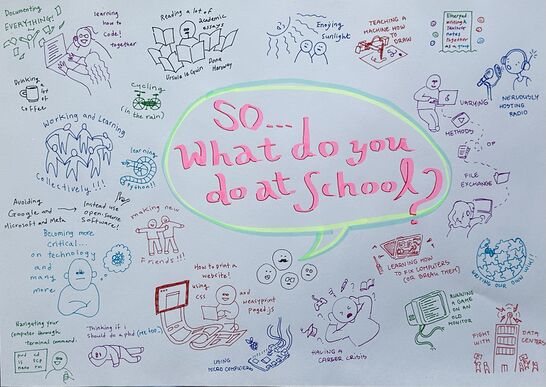 Documenting
EVERYTHING!
learning
how to
Code!
together
Reading a lot of
Academic
essays
Ursula Le Guin
Enjoying
Sunlight
TEACHING A
MACHINE HOW
TO
DRAW
together
as a group
Drinking
a
lot
of
coffee
Cycling
(in the rain)
SO...
What do you
do at School?
VARYING
METHODS
OF
FILE
EXCHANGE
NERVOUSLY
HOSTING
RADIO
Working and Learning
Collectively!!!
learning
Python!!
Avoiding
Google and
Microsoft and Meta
Instead use
open-source
Software!
making new
Friends!!!
Becoming more
critical...
on technology
and
many
more
How to print a
website!
using
CSS
and
weasyprint
pagedjs
LEARNING HOW
TO FIX COMPUTERS
(OR BREAK THEM)
MAKING OUR OWN WIKI!
Navigating your
computer through
Terminal command.
pwd cd
ls scp
nano rm
Thinking if I
should do a phd (me too..)
USING
MICRO COMPUTERS
HAVING A
CAREER CRISIS
RUNNING
A GAME
ON AN
OLD
MONITOR
FIGHT
WITH
DATA
CENTERS